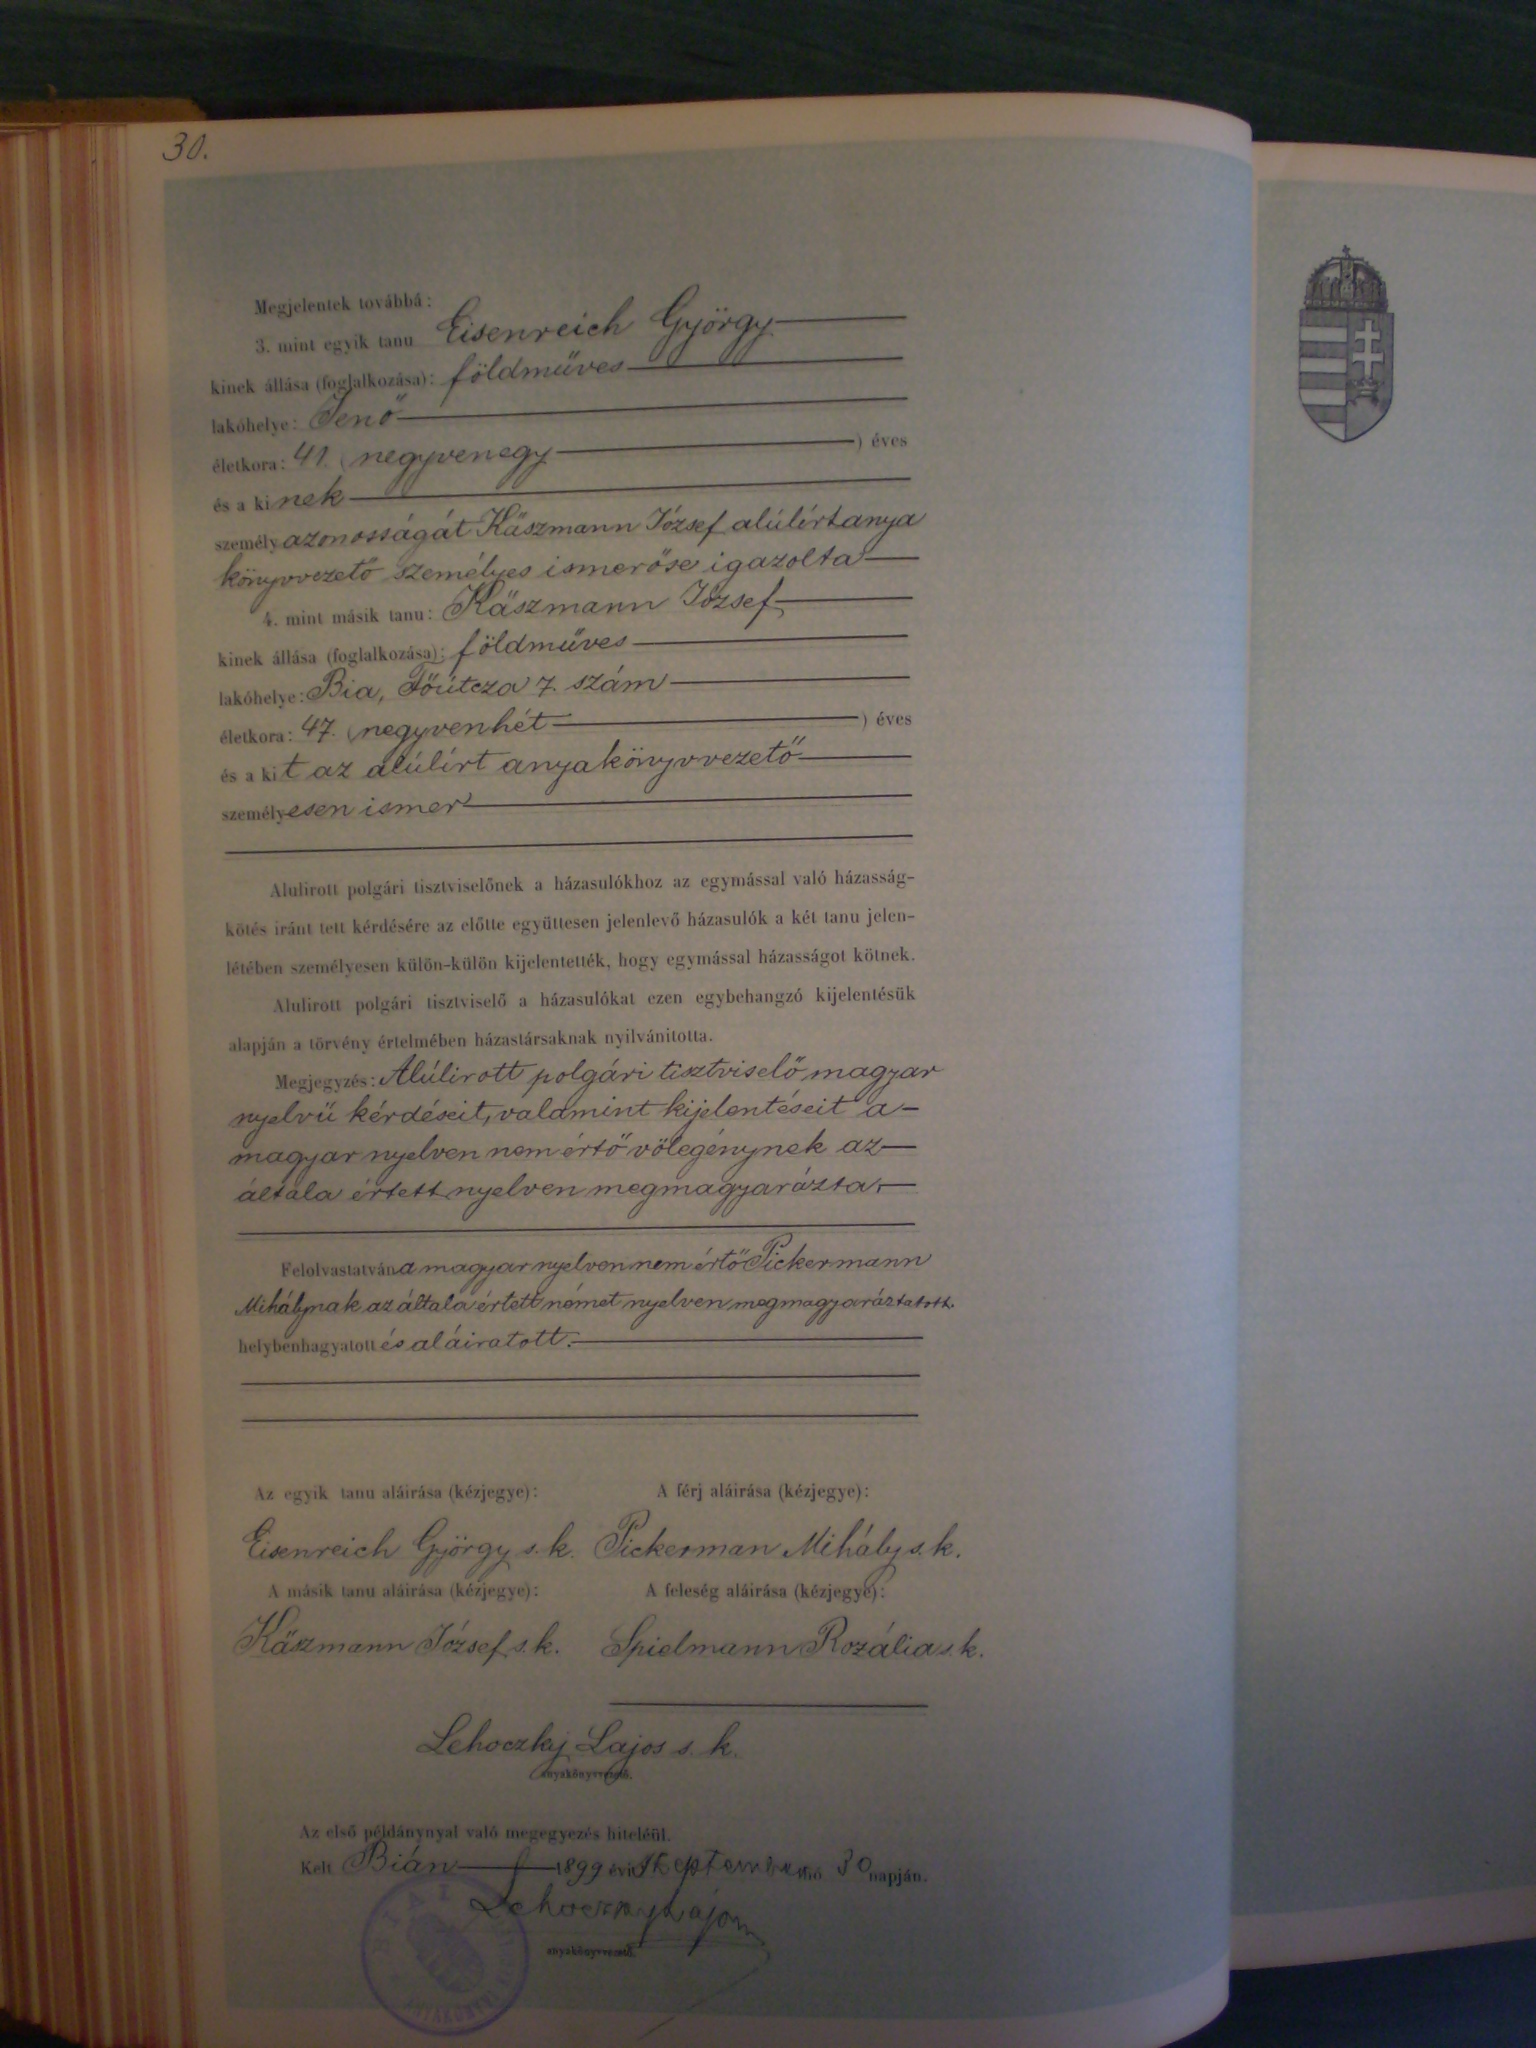 30.
Megjelentek továbbá:
3. mint egyik tanu Eisenreich György
kinek állása (foglalkozása): földműves
lakóhelye: Jenő
életkora: 41. (negyvenegy ) éves
és a kinek
személyazonosságát Käszmann József alúlírt anya
könyvvezető személyes ismerőse igazolta
4. mint másik tanu: Käszmann József
kinek állása (foglalkozása): földműves
lakóhelye: Bia, Főútcza 7. szám
életkora: 47. (negyvenhét ) éves
és a kit az alúlírt anyakönyvvezető
személyesen ismer
Alulirott polgári tisztviselőnek a házasulókhoz az egymással való házasság-
kötés iránt tett kérdésére az előtte együttesen jelenlevő házasulók a két tanu jelen-
létében személyesen külön-külön kijelentették, hogy egymással házasságot kötnek.
Alulirott polgári tisztviselő a házasulókat ezen egybehangzó kijelentésük
alapján a törvény értelmében házastársaknak nyilvánitotta.
Megjegyzés: Alúlirott polgári tisztviselő, magyar
nyelvű kérdéseit, valamint kijelentéseit a-
magyar nyelven nem értő völegénynek az
általa értett nyelven megmagyarázta.
Felolvastatván a magyar nyelven nem értő Pickermann
Mihálynak az általa értett német nyelven megmagyaráztatott.
helybenhagyatott és aláiratott.
Az egyik tanu aláirása (kézjegye): A férj aláirása (kézjegye):
Eisenreich György s. k. Pickerman Mihály s. k.
A másik tanu aláirása (kézjegye): A feleség aláirása (kézjegye):
Käszmann József s. k. Spielmann Rozália s. k.
Lehoczky Lajos s. k.
anyakönyvvezető.
Az első példánynyal való megegyezés hiteléül.
Kelt Bián 1899 évi September hó 30 napján.
Lehoczky Lajos
anyakönyvvezető.